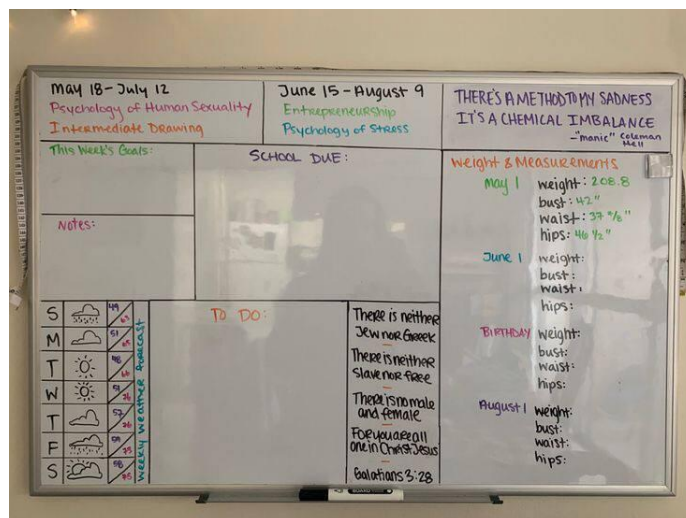 May 18-July 12
Psychology of Human Sexuality
Intermediate Drawing
June 15-August 9
Entrepreneurship
Psychology of Stress
THERE'S A METHOD TO MY SADNESS
IT'S A CHEMICAL IMBALANCE
-"manic" Coleman
Hell
This Week's Goals:
Notes:
SCHOOL DUE:
Weight & Measurements
May 1
weight: 208.8
bust: 42"
waist: 37 "
hips: 46 1/2"
June 1
weight:
bust:
waist:
hips:
BIRTHDAY
weight:
bust:
waist:
hips:
August 1
weight:
bust:
waist:
hips:
S 49
M 51
T
W
T 57
F
S
weekly weather forecast
TO DO:
There is neither
Jew nor Greek
There is neither
slave nor free
There is no male
and female
For you are all
one in Christ Jesus
Galatians 3:28